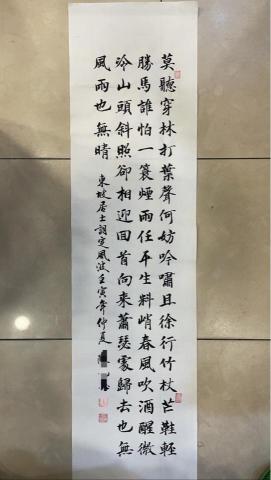 莫聽穿林打葉聲何妨吟嘯且徐行竹杖芒鞋輕
勝馬誰怕一蓑煙雨任平生料峭春風吹酒醒微
冷山頭斜照卻相迎回首向來蕭瑟處歸去也無
風雨也無晴
東坡居士詞定風波壬寅年仲夏